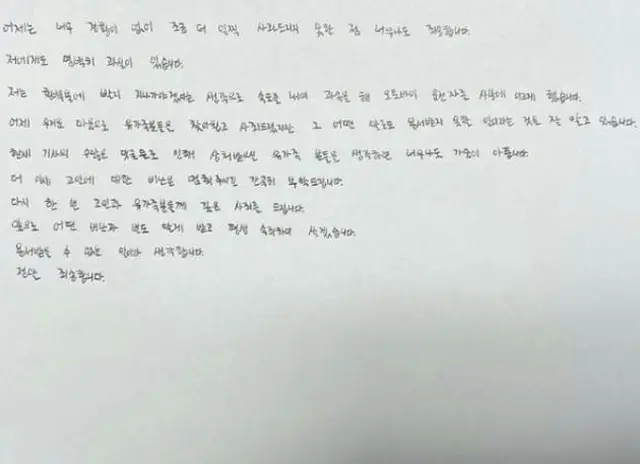 어제는 너무 경황이 없이 조금 더 일찍 사과드리지 못한 점 너무나도 죄송합니다.
저에게도 명백히 과실이 있습니다.
저는 황색불에 빨리 지나가야겠다는 생각으로 속도를 내며 과속을 해 오토바이 운전자를 사망에 이르게 했습니다.
어제 무거운 마음으로 유가족분들을 찾아뵙고 사죄드렸지만 그 어떤 말로도 용서받지 못할 일이라는 것을 잘 알고 있습니다.
현재 기사의 수많은 댓글들로 인해 상처받으실 유가족 분들을 생각하면 너무나도 가슴이 아픕니다.
더 이상 고인에 대한 비난은 멈춰주시길 간곡히 부탁드립니다.
다시 한 번 고인과 유가족분들께 깊은 사죄를 드립니다.
앞으로 어떤 비난과 벌도 달게 받고 평생 속죄하며 살겠습니다.
용서받을 수 없는 일이라 생각합니다.
정말 죄송합니다.